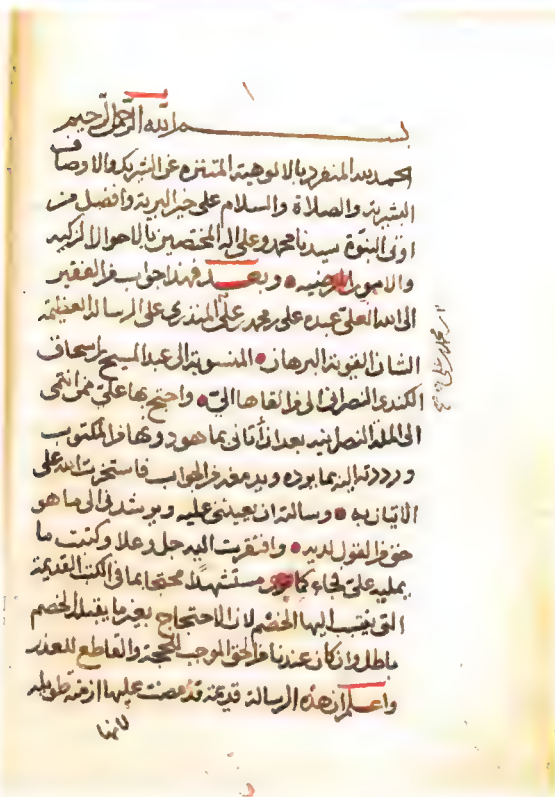 بسم الله الرحمن الرحيم
الحمد لله المنفرد بالالوهية المتنزه عن الشريك والاوصاف
البشرية والصلاة والسلام على خير البرية وافضل من
اوتى النبوة سيدنا محمد وعلى اله المختصين بالاحوال الزكيه
والامور المرضيه وبعد فهذا جواب من الفقير
الى الله العلي عبده على بن محمد بن علي المنذري على الرسالة العظيمة
الشان القوية البرهان المنسوبة الى عبد المسيح بن اسحاق
الكندي النصراني الذي القاها الي واحتج بها علي من انتمى
الى الملة النصرانيه بعد ان أتاني بما هو دونها من المكتوب
ورددته اليه بما يرده ويدمغه من الجواب فاستخرت الله على
الاتيان به وسالته ان يعينني عليه ويرشدني الى ما هو
حق من القول لديه وافتقرت اليه جل وعلا وكتبت ما
يمليه علي فجاء كما مستشهدا محتجا بما في الكتب القديمة
التي ينتسب اليها الخصم لان الاحتجاج بغير ما يقبله الخصم
باطل وان كان عندنا من الحق الموجب للحجة والقاطع للعذر
واعلم ان هذه الرسالة قديمة قد مضت عليها ازمنة طويله
لانها